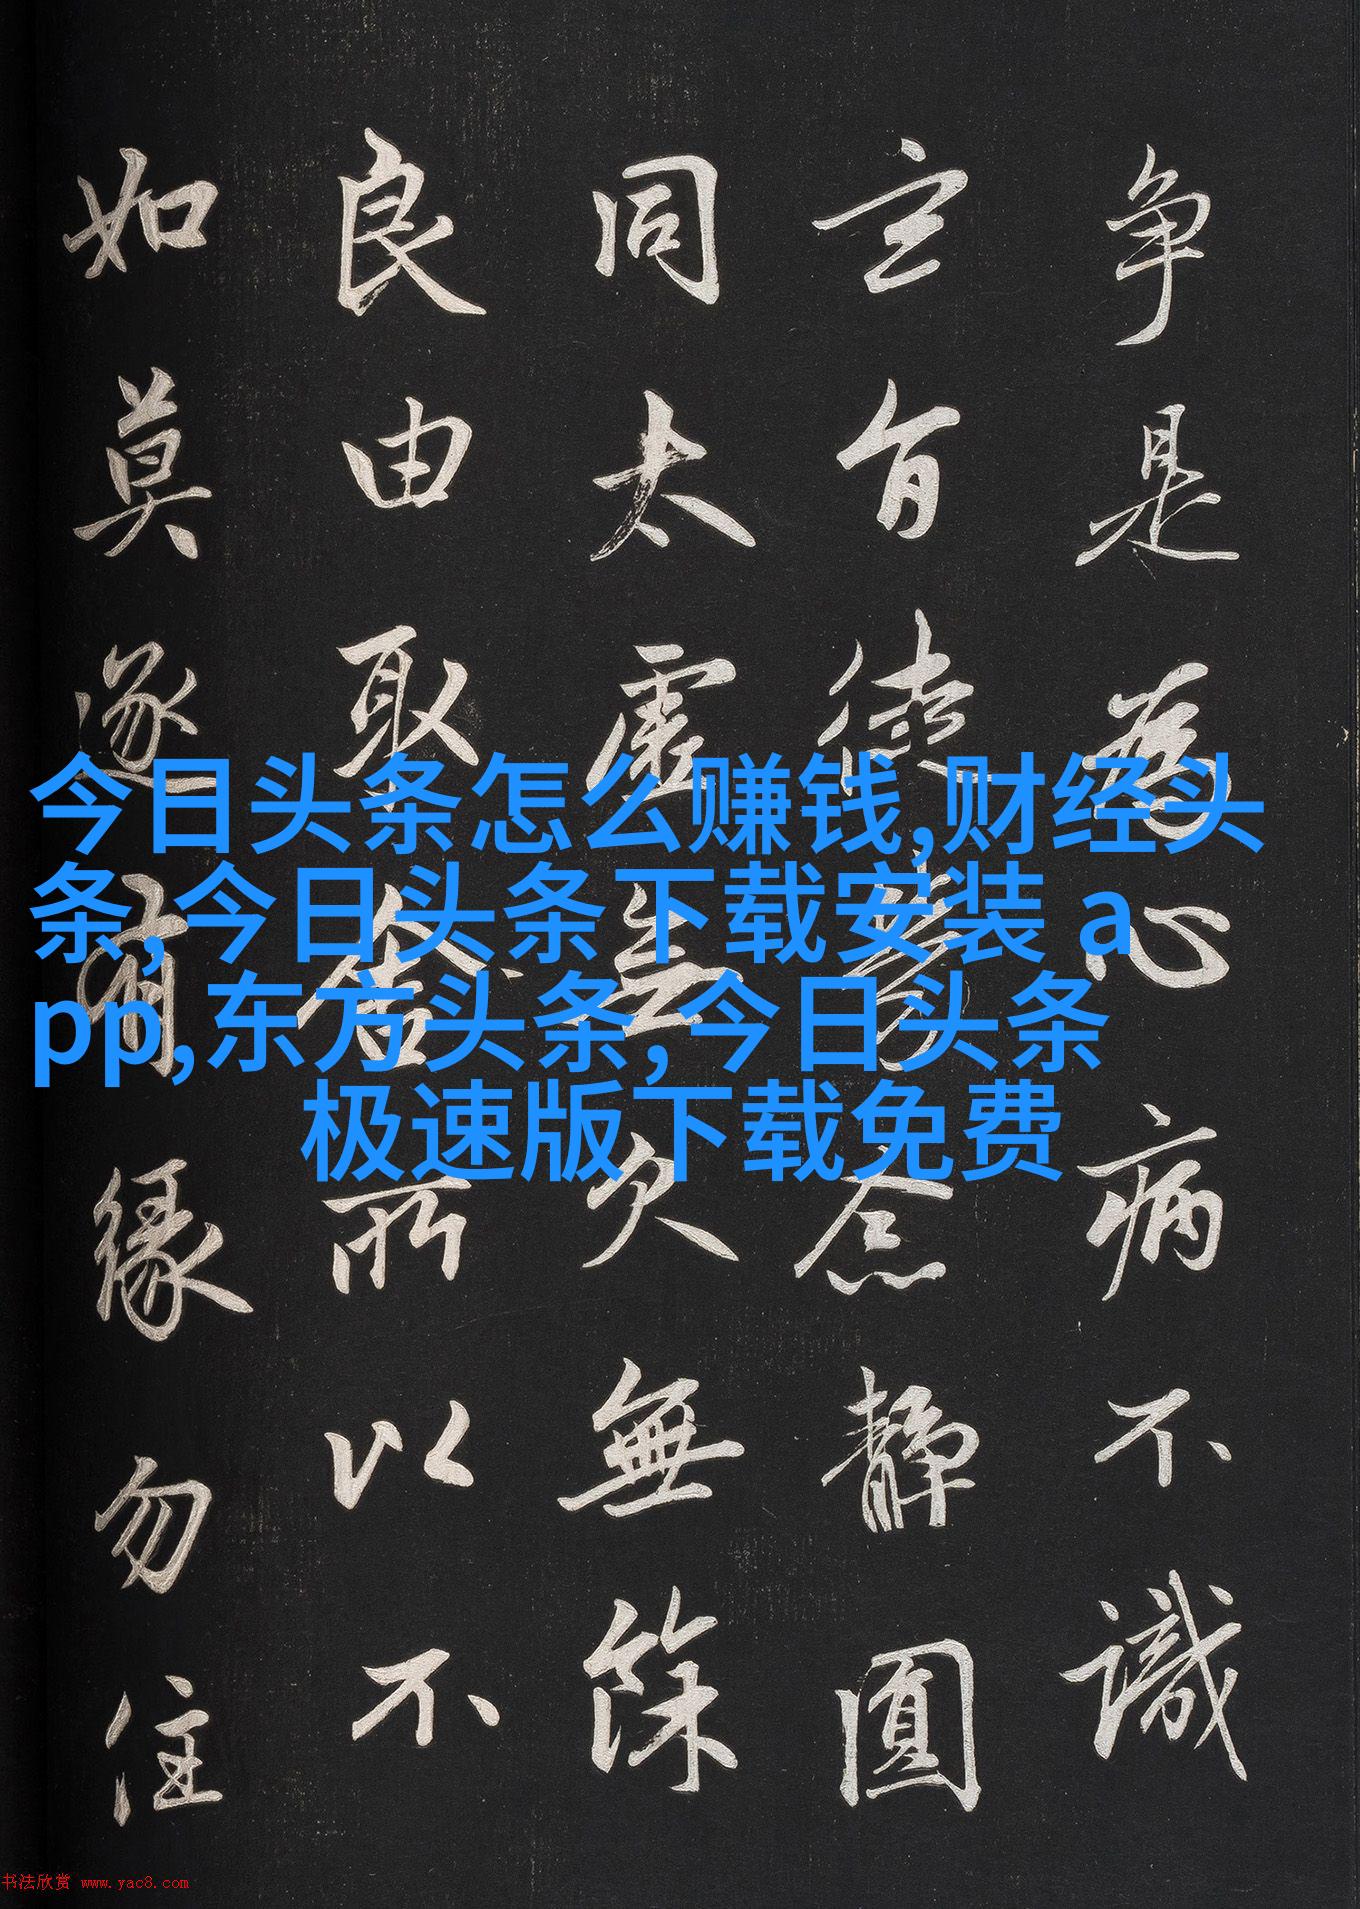 争是為心病不識
玄旨徒勞念静圓
同太虛无欠無餘
良由取舍所以不
如莫逐有緣勿住
今日头条怎么赚钱,财经头
条,今日头条下载安装 a
pp,东方头条,今日头条
极速版下载免费
书法欣赏 www.yac8.com